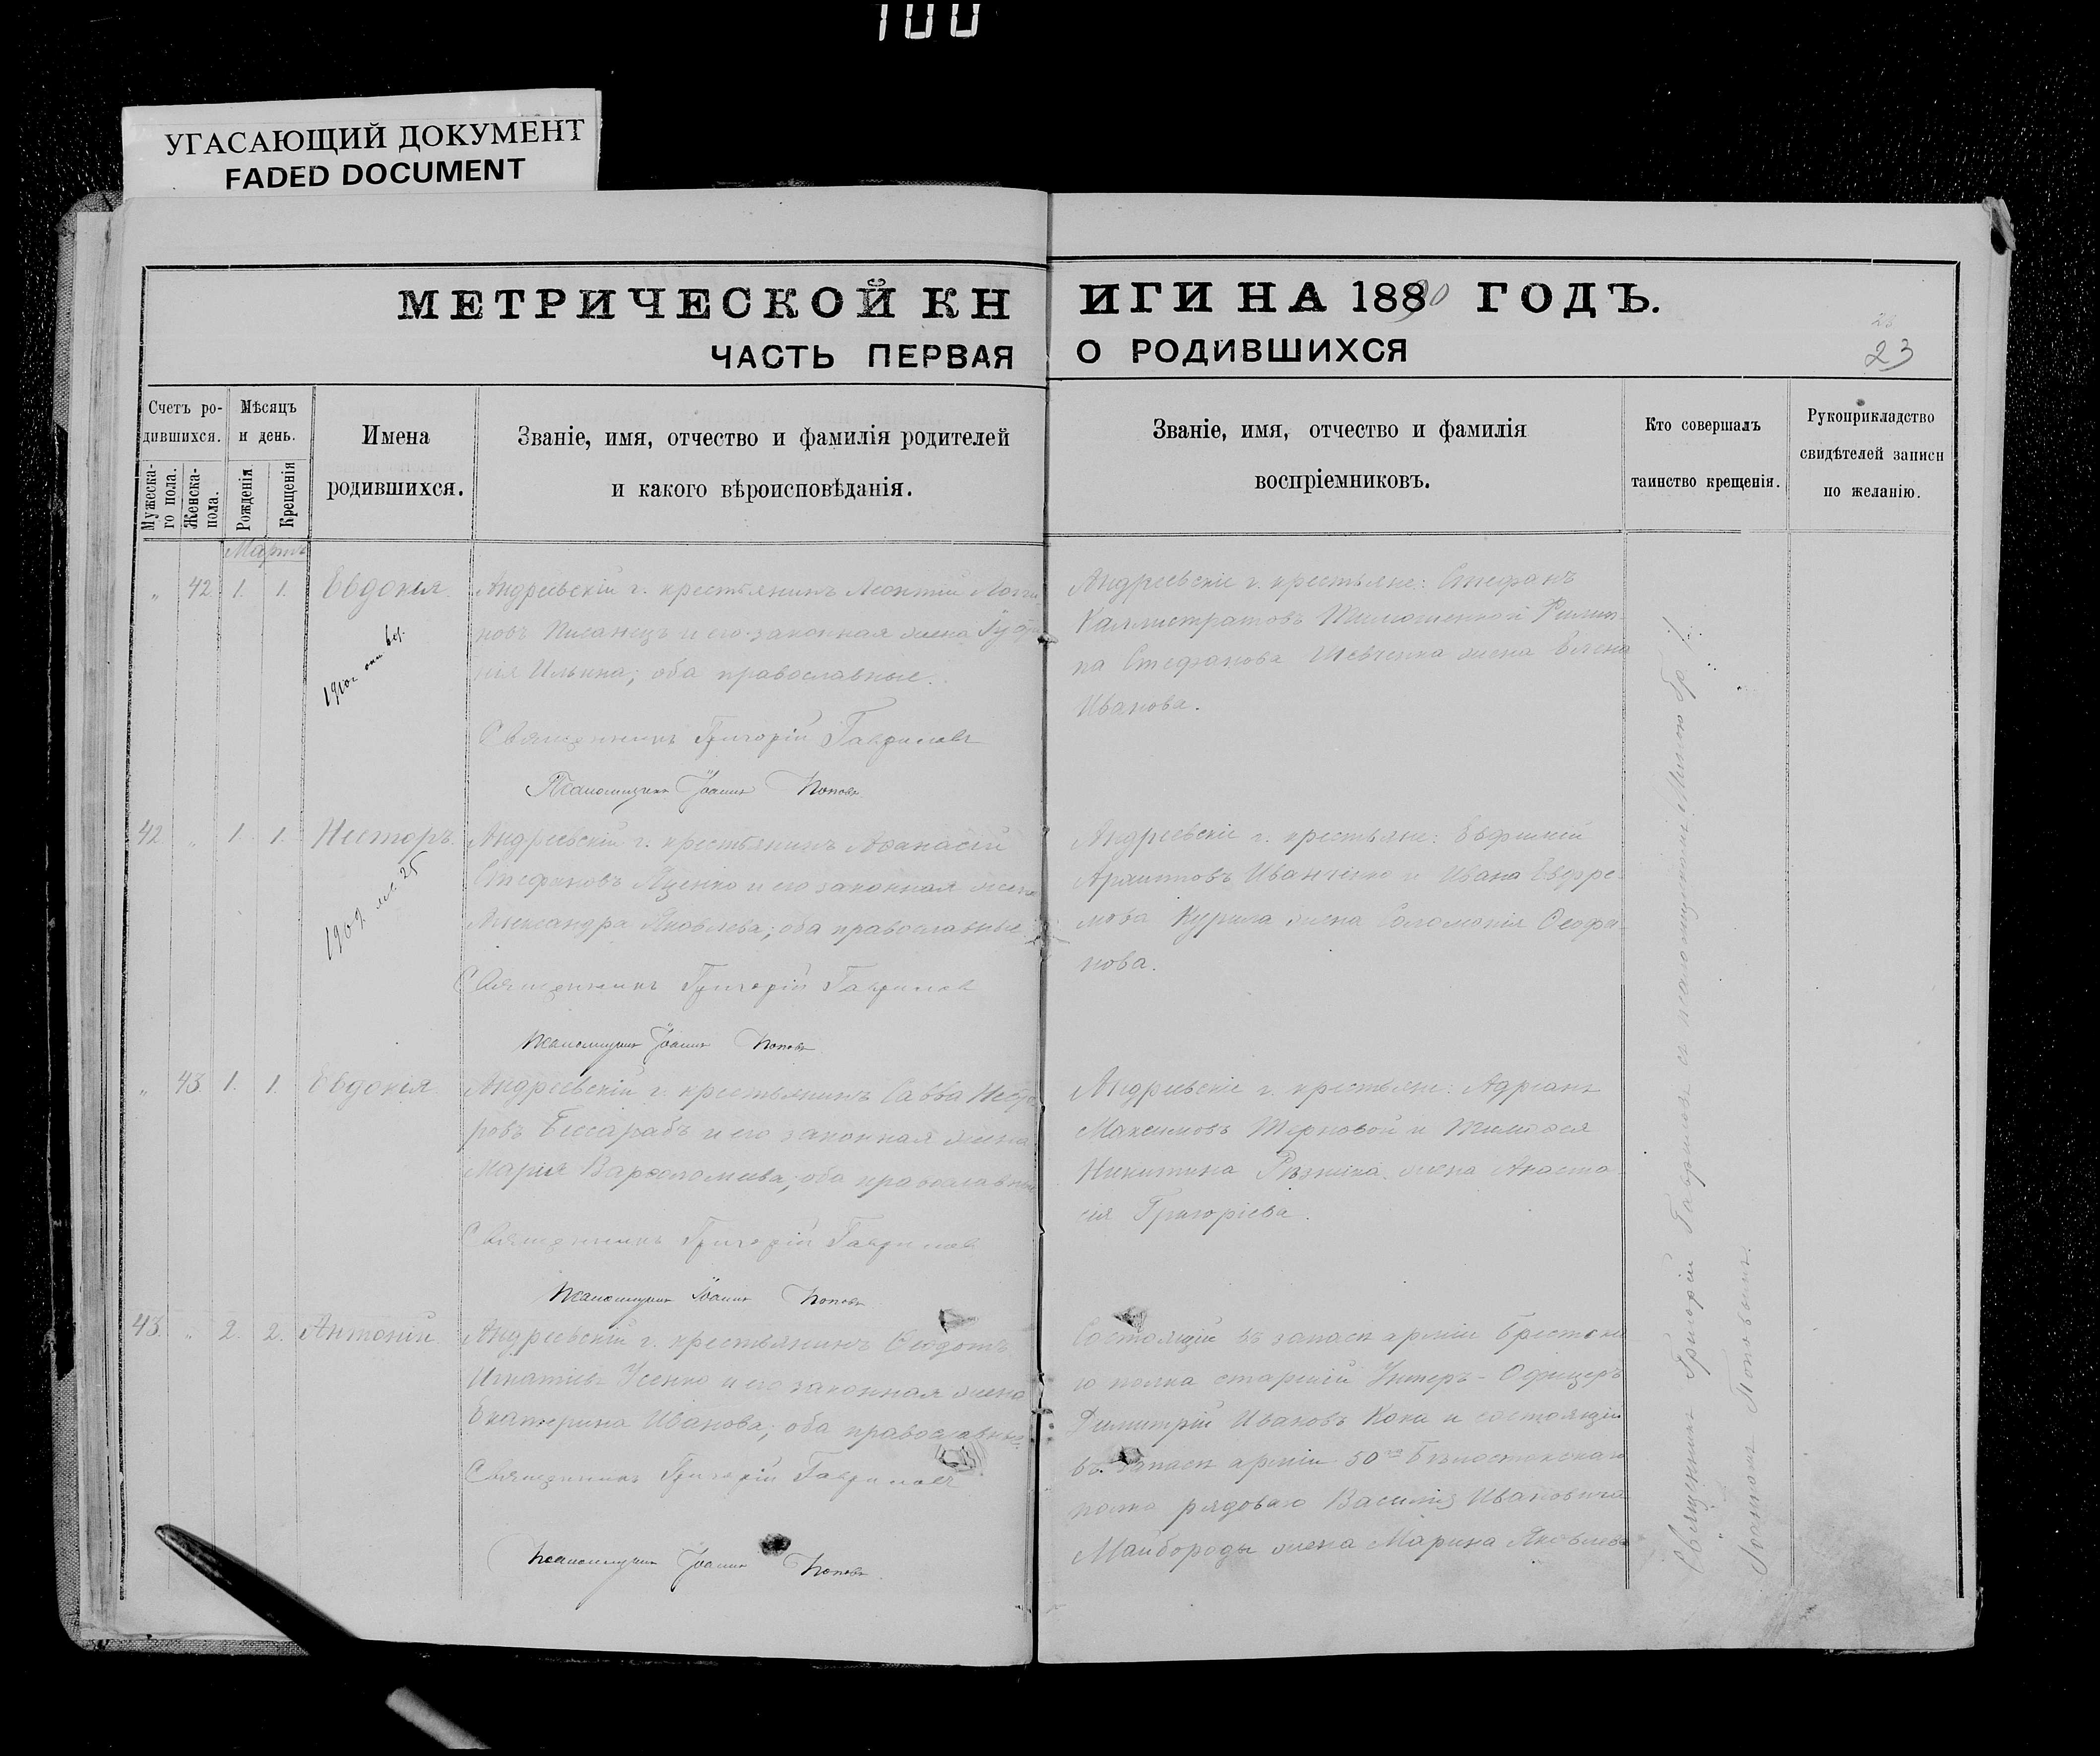 100
УГАСАЮЩИЙ ДОКУМЕНТ
FADED DOCUMENT
МЕТРИЧЕСКОЙ КНИГИ НА 1890 ГОДЪ.
ЧАСТЬ ПЕРВАЯ О РОДИВШИХСЯ
23
23
Счетъ ро-
дившихся.
Мужеска-
го пола.
Женска-
пола.
Мѣсяцъ
и день.
Рожденія
Крещенія
Имена
родившихся.
Званіе, имя, отчество и фамилія родителей
и какого вѣроисповѣданія.
Званіе, имя, отчество и фамилія
воспріемниковъ.
Кто совершалъ
таинство крещенія.
Рукоприкладство
свидѣтелей записи
по желанію.
Мартъ
„ 42 1. 1. Евдокія.
Андреевскій г. крестьянинъ Леонтій Логги-
новъ Писанецъ и его законная жена
Ильина; оба православные.
Священникъ Григорій Гавриловъ
Псаломщикъ Іоаннъ Поповъ
Андреевскіе г. крестьяне: Стефанъ
Каллистратовъ и Филип-
па Стефанова Шевченка жена Елена
Иванова.
42 „ 1. 1. Несторъ.
1902
Андреевскій г. крестьянинъ Аѳанасій
Стефановъ Яценко и его законная жена
Александра Яковлева; оба православные
Священникъ Григорій Гавриловъ
Псаломщикъ Іоаннъ Поповъ
Андреевскіе г. крестьяне: Евфимій
Иванченко и Ивана Ефре-
мова Курила жена Соломонія Ѳеофа-
нова.
„ 43 1. 1. Евдокія
Андреевскій г. крестьянинъ Савва
ровъ Бессарабъ и его законная жена
Марія Варѳоломеева; оба православные
Священникъ Григорій Гавриловъ
Псаломщикъ Іоаннъ Поповъ
Андреевскіе г. крестьяне: Адріанъ
Максимовъ Терновой и Тимоѳея
Никитина Рѣзника жена Анаста-
сія Григоріева.
43 „ 2. 2. Антоній
Андреевскій г. крестьянинъ Ѳеодотъ
Игнатіевъ Усенко и его законная жена
Екатерина Иванова; оба православные.
Священникъ Григорій Гавриловъ
Псаломщикъ Іоаннъ Поповъ
Состоящій въ запасѣ арміи Брестска-
го полка старшій Унтеръ-Офицеръ
Димитрій Ивановъ Кока и состоящаго
въ запасѣ арміи 50го Бѣлостокскаго
полка рядоваго Василія Ивановича
Майбороды жена Марина Яковлева
Священникъ Григорій Гавриловъ съ псаломщикомъ
Іоанномъ Поповымъ.